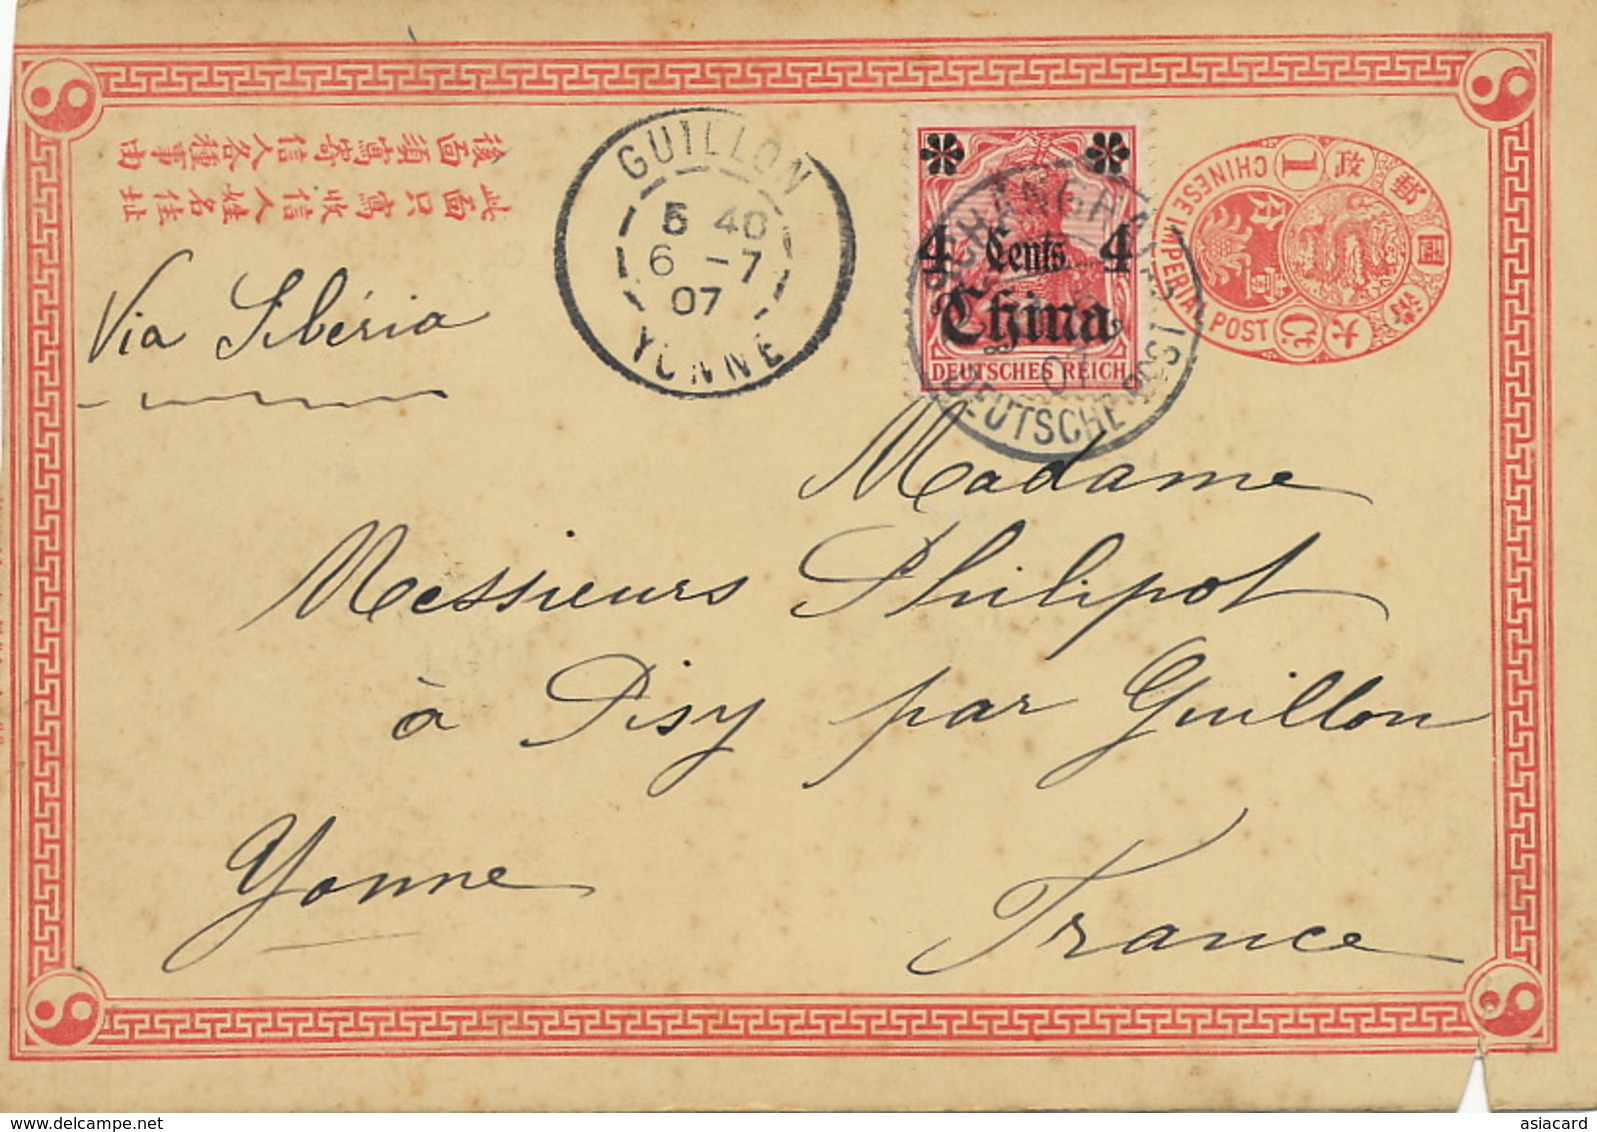 後面須寫寄信人各種事由
此面只寫收信人姓名住址
Via Sibéria
GUILLON
5 40
6 -7
07
YONNE
4 Cents 4
China
DEUTSCHES REICH
SHANGHAI
07
DEUTSCHE POST
大清國郵政
CHINESE IMPERIAL POST
1 Ct.
壹分
Madame
Messieurs Philipot
à Pisy par Guillon
Yonne France
delcampe.net
asiacard